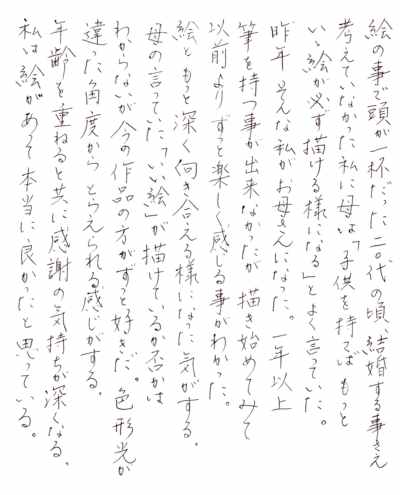 絵の事で頭が一杯だった二〇代の頃、結婚する事さえ
考えていなかった私に母は「子供を持てば もっと
いゝ絵が必ず描ける様になる」とよく言っていた。
昨年 そんな私がお母さんになった。一年以上
筆を持つ事が出来なかったが 描き始めてみて
以前よりずっと楽しく感じる事がわかった。
絵ともっと深く向き合える様になった気がする。
母の言っていた「いい絵」が描けているか否かは
わからないが 今の作品の方がずっと好きだ。色 形 光が
違った角度から とらえられる感じがする。
年齢を重ねると共に感謝の気持ちが深くなる。
私は絵があって本当に良かったと思っている。